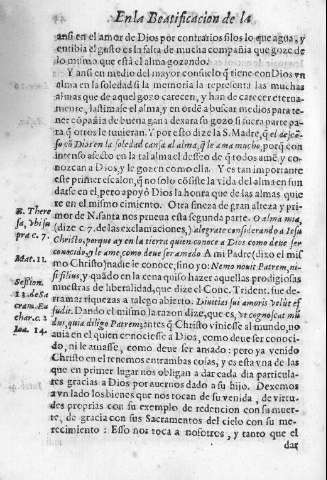 En la Beatificacion de la
ansi en el amor de Dios por contrarios filos lo que agua, y
entibia el gusto es la falta de mucha compañia que goze de
lo mismo que està el alma gozando.
Y ansi en medio del mayor consuelo q̃ tiene con Dios vn
alma en la soledad si la memoria la representa las muchas
almas que de aquel gozo carecen, y han de carecer eterna-
mente, lastimase el alma, y en orde a buscar medios para te-
ner cõpañia de buena gana dexara su gozo si fuera parte pa-
ra q̃ otros le tuuieran. Y por esto dize la S. Madre, q̃ el descã-
so cõ Dios en la soledad cansa al alma, q̃ le ama mucho, porq̃ con
intenso afecto en la tal alma el desseo de q̃ todos amẽ, y co-
nozcan a Dios, y le gozen como ella. Y es tan importante
este primer escalon, q̃ no solo cõsiste la vida del alma en fun
darse en el, pero apoyò Dios la honra que de las almas quie
re en el mismo cimiento. Otra fineza de gran alteza y pri-
mor de N. santa nos prueua esta segunda parte. O alma mia,
(dize c. 7. de las exclamaciones,) alegrate considerando a Iesu
Christo, porque ay en la tierra quien conoce a Dios como deue ser
conocido, y le ame como deue ser amado. A mi Padre (dixo el mis
mo Christo) nadie le conoce, sino yo: Nemo nouit Patrem, ni-
si filius, y quãdo en la cena quiso hazer aquellas prodigiosas
muestras de liberalidad, que dize el Conc. Trident. fue de-
rramar riquezas a talego abierto. Diuitias sui amoris velut ef
fudit. Dando el mismo la razon dize, que es, vt cognoscat mũ
dus, quia diligo Patrem, antes q̃ Christo viniesse al mundo, no
auia en el quien conociesse a Dios, como deue ser conoci-
do, ni le amasse, como deue ser amado: pero ya venido
Christo en el tenemos entrambas cosas, y es esta vna de las
que en primer lugar nos obligan a dar cada dia particula-
res gracias a Dios por auernos dado a su hijo. Dexemos
a vn lado los bienes que nos tocan de su venida, de virtu-
des proprias con su exemplo de redencion con su muer-
te, de gracia con sus Sacramentos del cielo con su me-
recimiento: Esso nos toca a nosotros, y tanto que el
dar
S. There
sa, vbi su
pra c. 7.
Mat. 11.
Session.
13. de Sa
cram. Eu
char. c. 2
Ioa. 14.